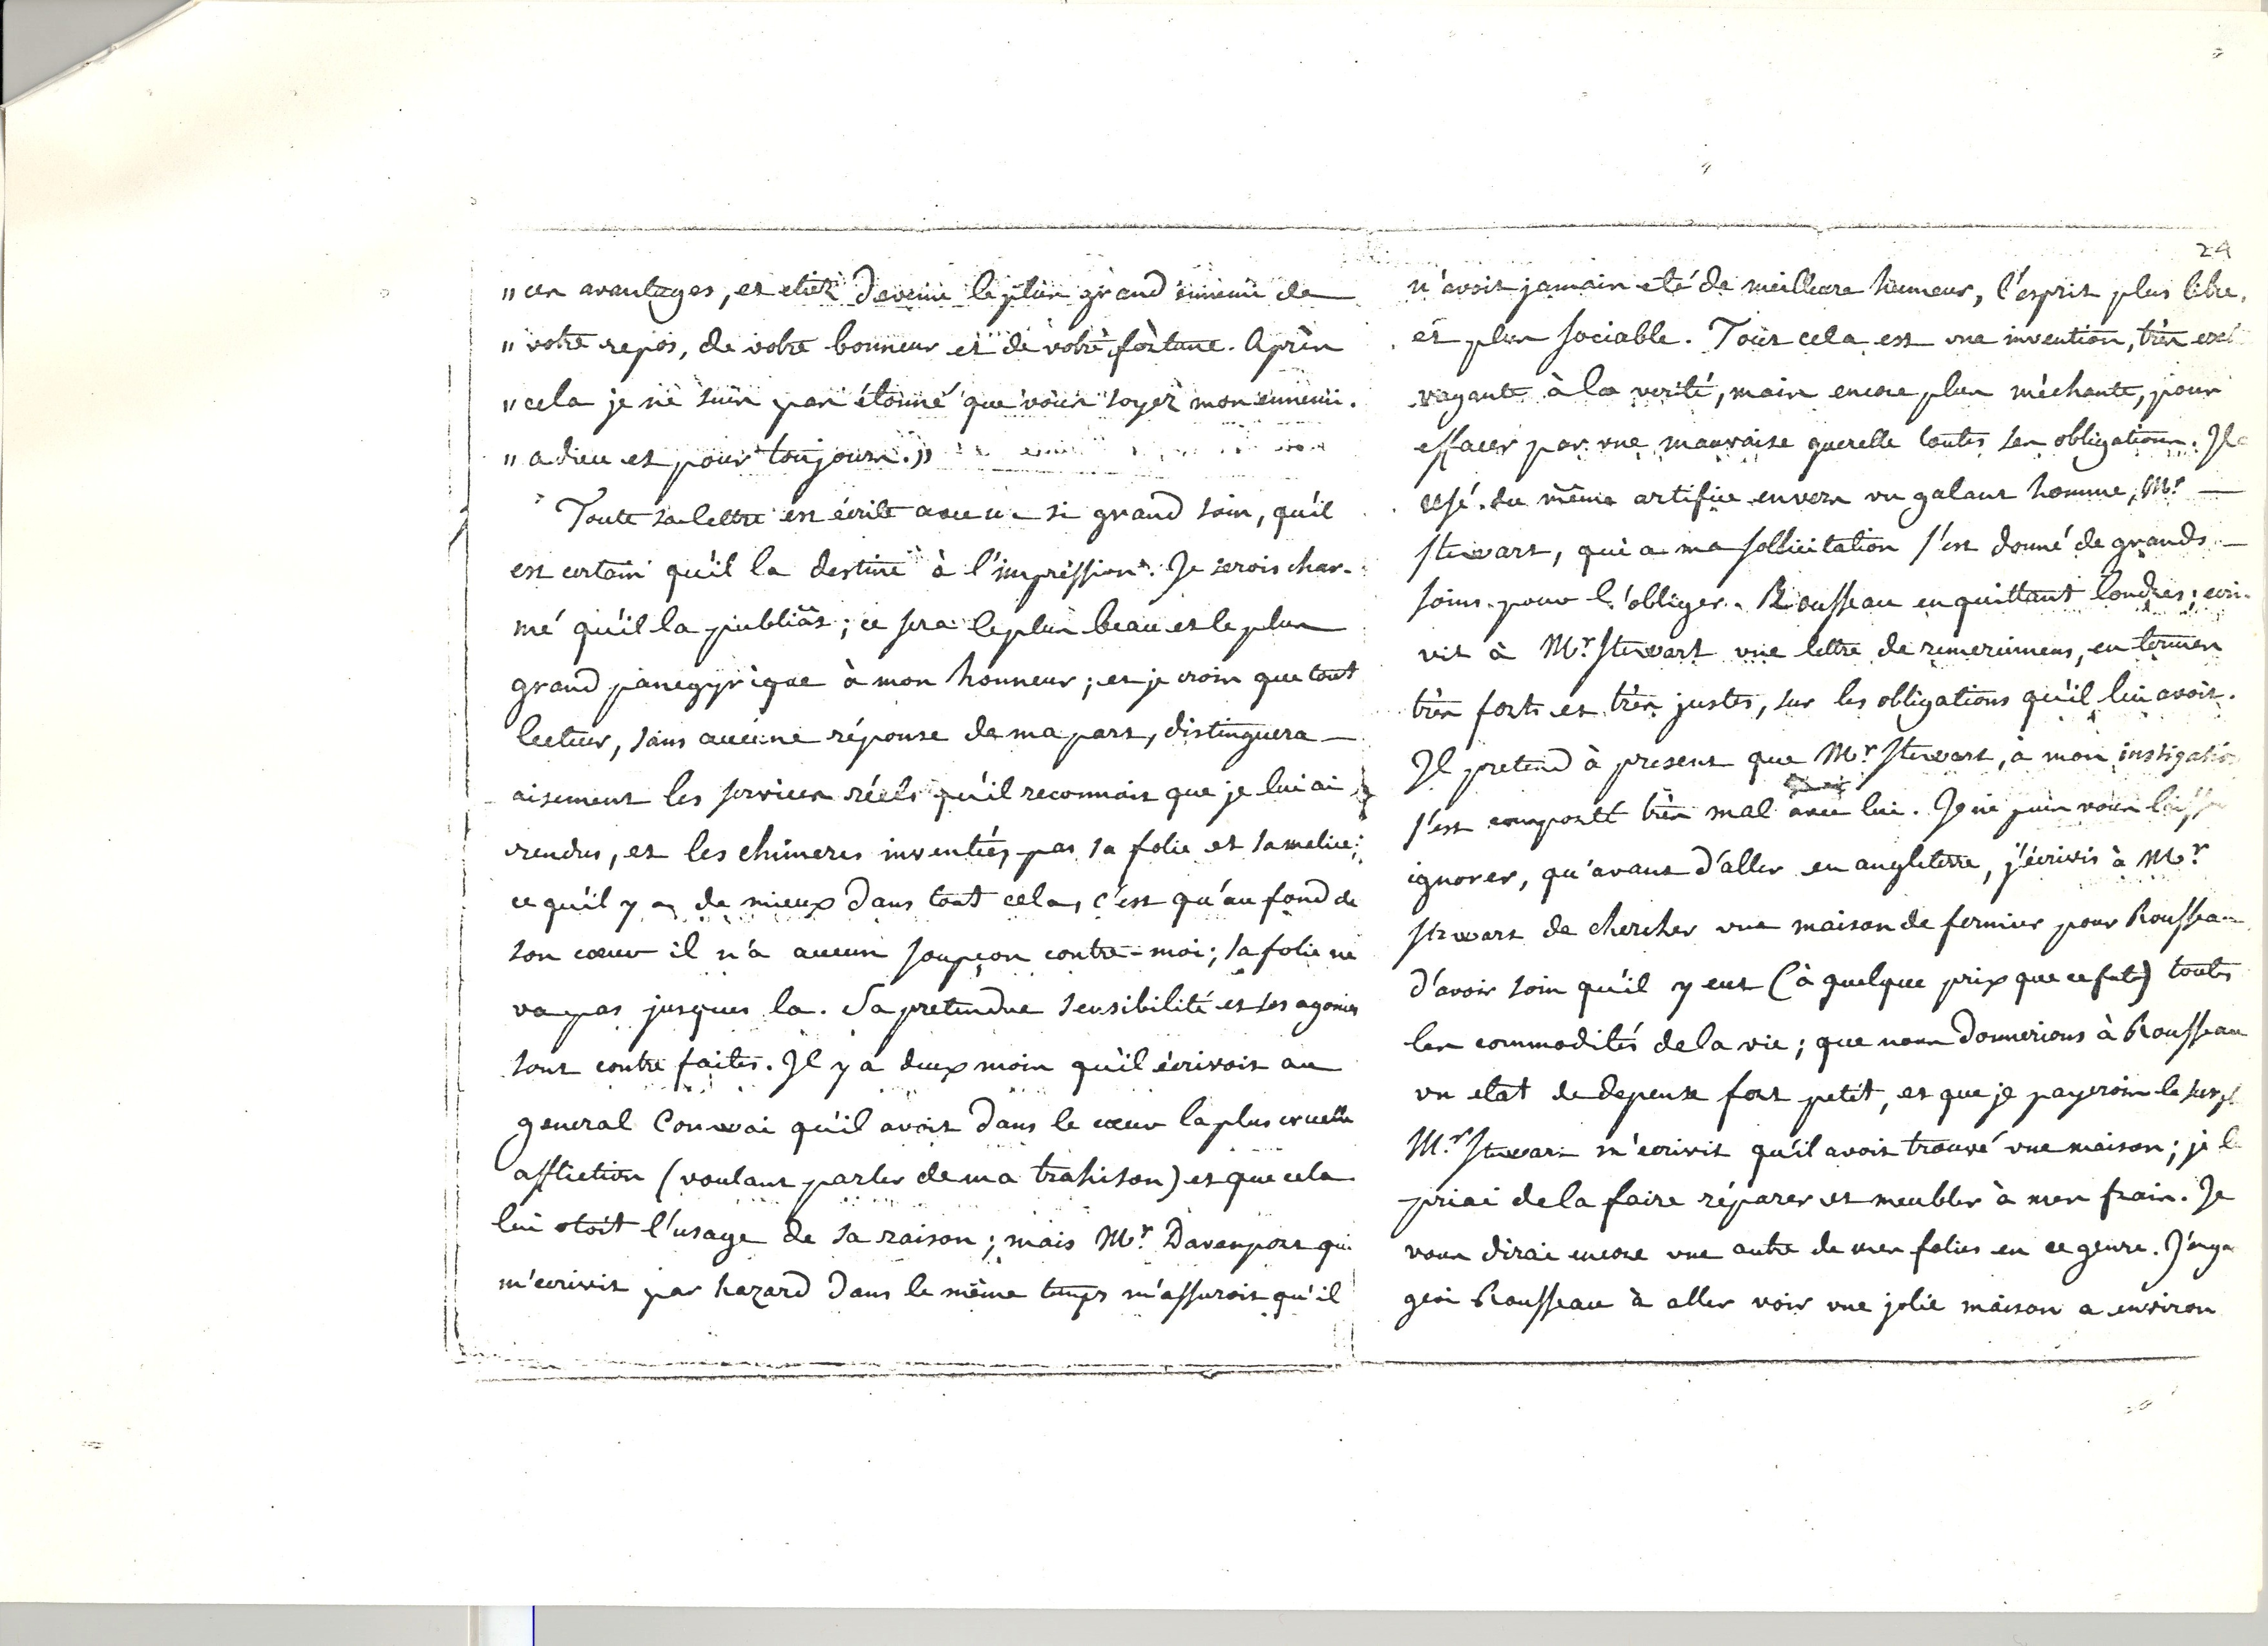 „ ces avantages, et etiez devenu le plus grand ennemi de
„ votre repos, de votre bonneur et de votre fortune. Après
„ cela je ne suis pas étonné que vous soyez mon ennemi.
„ adieu et pour toujours. „
Toute sa lettre est écrite avec un si grand soin, qu'il
est certain qu'il la destine à l'impression. Je serois char-
mé qu'il la publiât ; ce sera le plus beau et le plus
grand panegyrique à mon honneur ; et je crois que tout
lecteur, sans aucune réponse de ma part, distinguera
aisement les services réels qu'il reconnoit que je lui ai
rendus, et les chimeres inventées par sa folie et sa malice ;
ce qu'il y a de mieux dans tout cela, c'est qu'au fond de
son cœur il n'a aucun soupçon contre-moi ; sa folie ne
va pas jusques la. Sa pretendue sensibilité et ses agonies
sont contre faites. Il y a deux mois qu'il écrivoit au
general Conwai qu'il avoit dans le cœur la plus cruelle
affliction (voulant parler de ma trahison) et que cela
lui otoit l'usage de sa raison ; mais Mr. Davenport qui
m'ecrivit par hazard dans le même temps m'assuroit qu'il
24
n'avoit jamais eté de meilleure humeur, l'esprit plus libre,
et plus sociable. Tout cela est une invention, très extra
vagante à la verité, mais encore plus méchante, pour
effacer par une mauvaise querelle toutes ses obligations. Il a
usé du même artifice envers un galant homme, Mr.
Stewart, qui a ma sollicitation s'est donné de grands
soins pour l'obliger. Rousseau en quittant londres, ecri-
vit à Mr. Stewart une lettre de remerciemens, en termes
très forts et très justes, sur les obligations qu'il lui avoit.
Il pretend à present que Mr. Stewart, à mon instigation
s'est comporté très mal avec lui. Je ne puis vous laisser
ignorer, qu'avant d'aller en angleterre, j'écrivis à Mr.
Stewart de chercher une maison de fermier pour Rousseau
d'avoir soin qu'il y eut (à quelque prix que ce fut) toutes
les commodités de la vie ; que nous donnerions à Rousseau
un etat de depense fort petit, et que je payerois le surpl
Mr. Stewart m'ecrivit qu'il avoit trouvé une maison ; je le
priai de la faire réparer et meubler à mes frais. Je
vous dirai encore une autre de mes folies en ce genre. J'enga
geai Rousseau à aller voir une jolie maison a environ